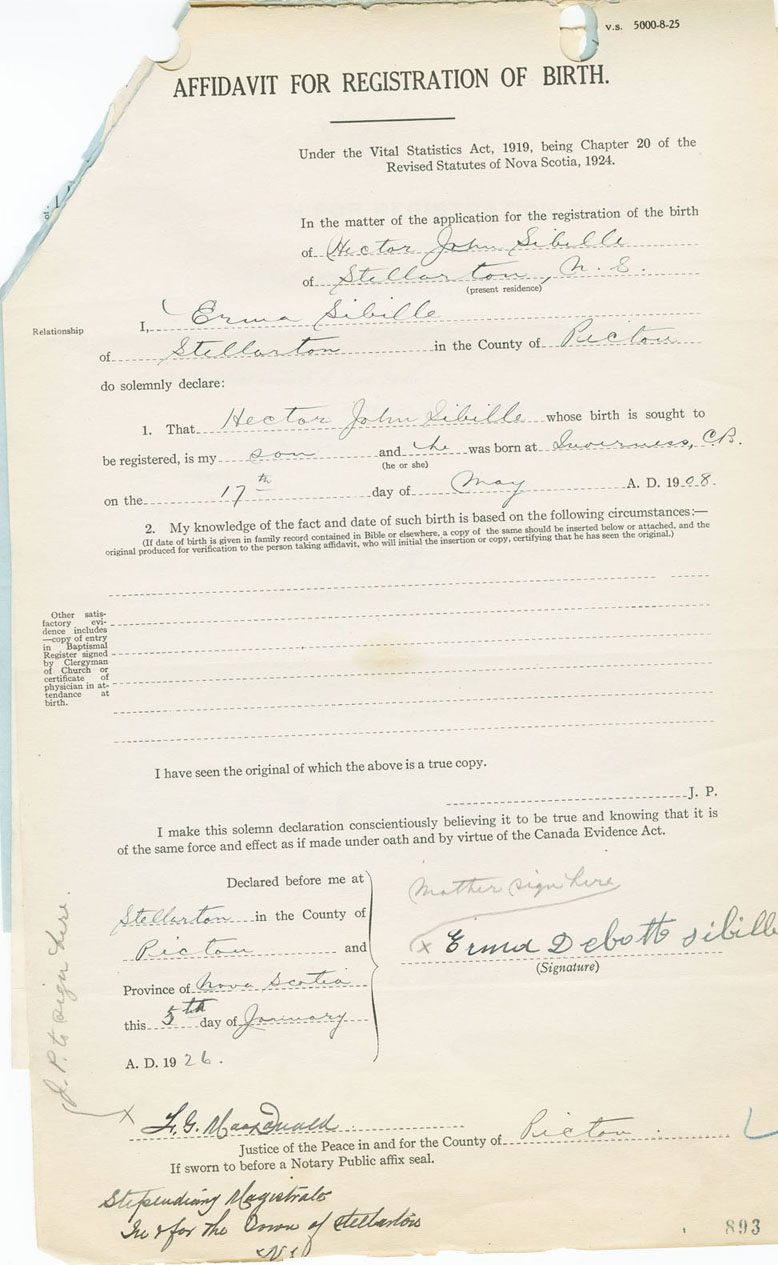 v.s. 5000-8-25
AFFIDAVIT FOR REGISTRATION OF BIRTH.
Under the Vital Statistics Act, 1919, being Chapter 20 of the
Revised Statutes of Nova Scotia, 1924.
In the matter of the application for the registration of the birth
of Hector John Sibille
of Stellarton, N. S.
(present residence)
Relationship
I, Erma Sibille
of Stellarton in the County of Pictou
do solemnly declare:
1. That Hector John Sibille whose birth is sought to
be registered, is my son and he was born at Inverness, C.B.
(he or she)
on the 17th day of May A. D. 1908.
2. My knowledge of the fact and date of such birth is based on the following circumstances:—
(If date of birth is given in family record contained in Bible or elsewhere, a copy of the same should be inserted below or attached, and the
original produced for verification to the person taking affidavit, who will initial the insertion or copy, certifying that he has seen the original.)
Other satis-
factory evi-
dence includes
—copy of entry
in Baptismal
Register signed
by Clergyman
of Church or
certificate of
physician in at-
tendance at
birth.
I have seen the original of which the above is a true copy.
J. P.
I make this solemn declaration conscientiously believing it to be true and knowing that it is
of the same force and effect as if made under oath and by virtue of the Canada Evidence Act.
Declared before me at
Stellarton in the County of
Pictou and
Province of Nova Scotia
this 5th day of January
A. D. 1926.
Mother sign here
x Erma Debott Sibille
(Signature)
J. P. to sign here.
x MacDonald
Justice of the Peace in and for the County of Pictou.
If sworn to before a Notary Public affix seal.
Stipendiary Magistrate
In & for the Town of Stellarton
N S
893